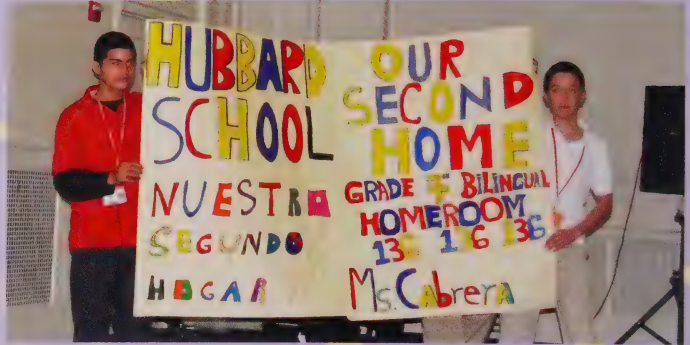 HUBBARD
SCHOOL
NUESTRO
SEGUNDO
HOGAR
OUR
SECOND
HOME
GRADE 7 BILINGUAL
HOMEROOM
136
Ms. Cabrera